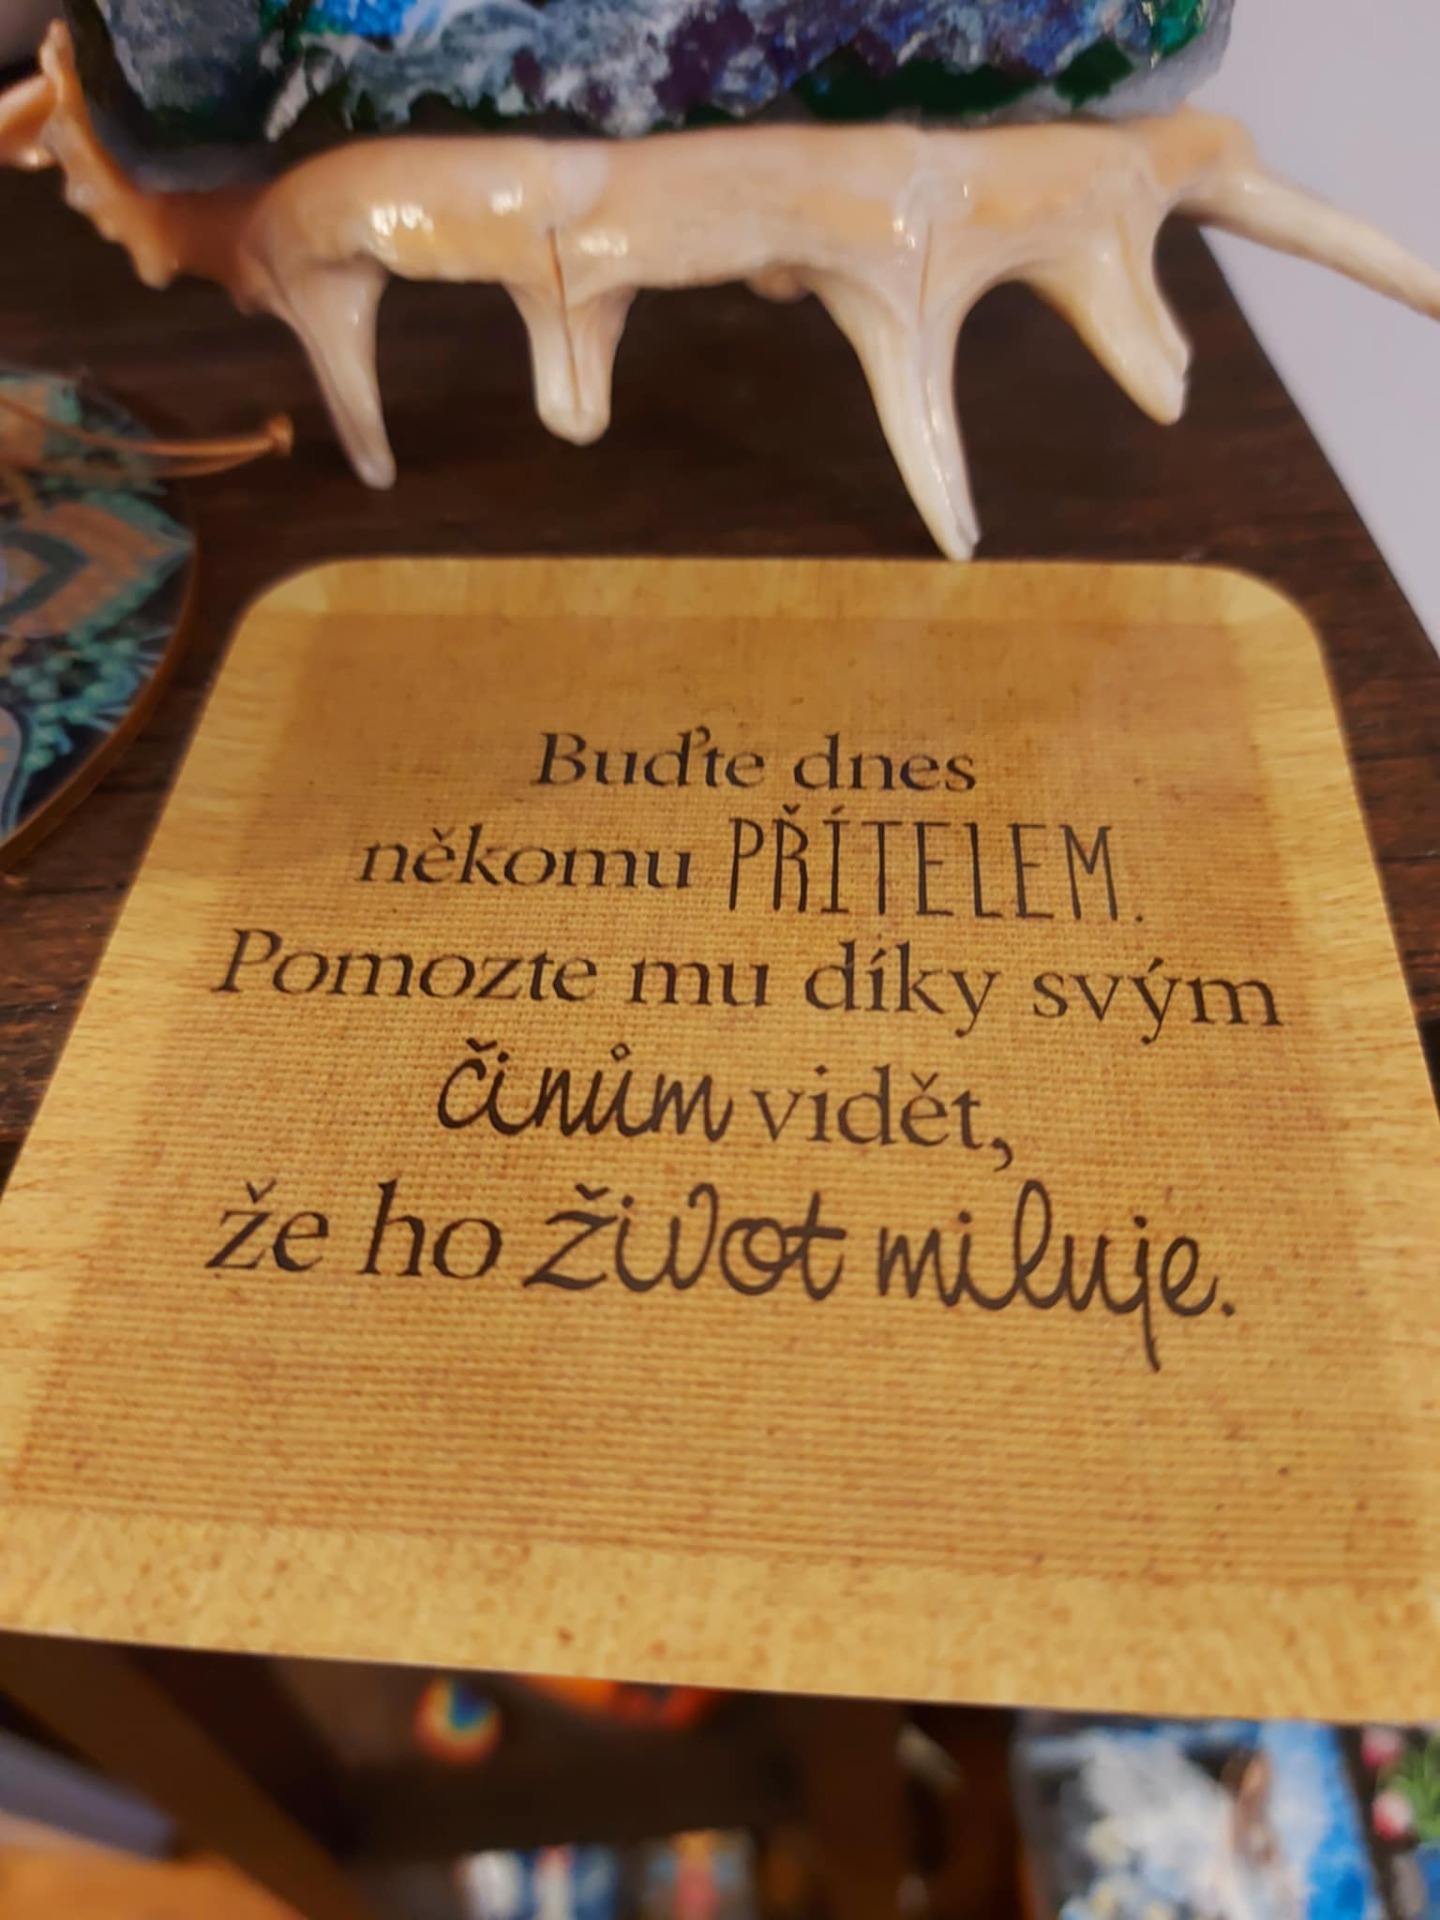 Buďte dnes
někomu PŘÍTELEM.
Pomozte mu díky svým
činům vidět,
že ho život miluje.